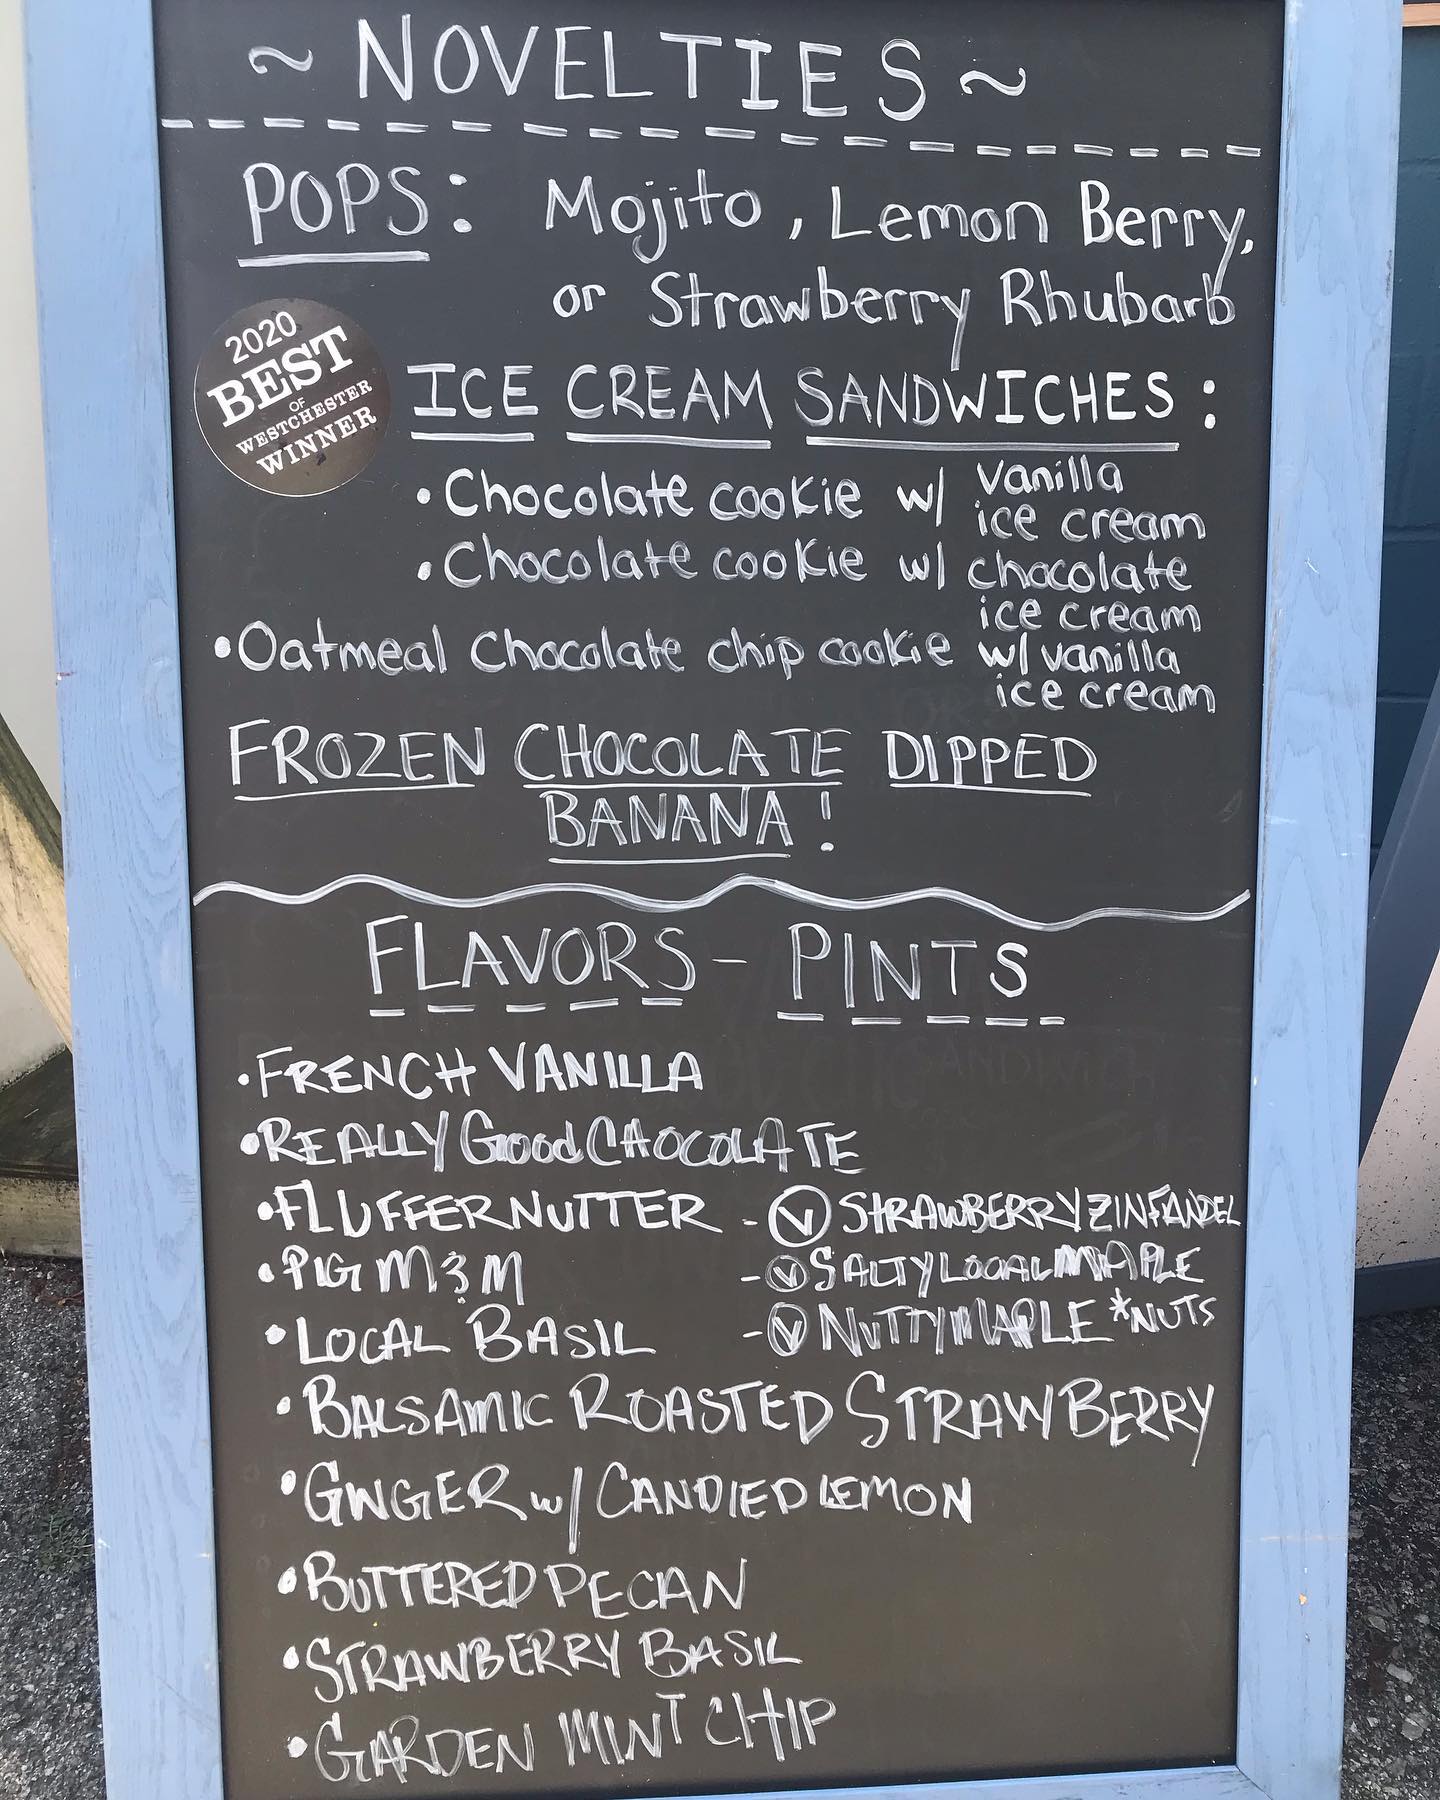 ~ NOVELTIES ~
POPS: Mojito, Lemon Berry,
or Strawberry Rhubarb
2020
BEST
OF
WESTCHESTER
WINNER
ICE CREAM SANDWICHES:
• Chocolate cookie w/ vanilla
ice cream
• Chocolate cookie w/ chocolate
ice cream
• Oatmeal chocolate chip cookie w/ vanilla
ice cream
FROZEN CHOCOLATE DIPPED
BANANA!
FLAVORS - PINTS
• FRENCH VANILLA
• REALLY Good CHOCOLATE
• FLUFFERNUTTER
• PIG M&M
• LOCAL BASIL
- Ⓥ STRAWBERRY ZINFANDEL
- Ⓥ SALTY LOCAL MAPLE
- Ⓥ NUTTY MAPLE *NUTS
• BALSAMIC ROASTED STRAWBERRY
• GINGER w/ CANDIED LEMON
• BUTTERED PECAN
• STRAWBERRY BASIL
• GARDEN MINT CHIP